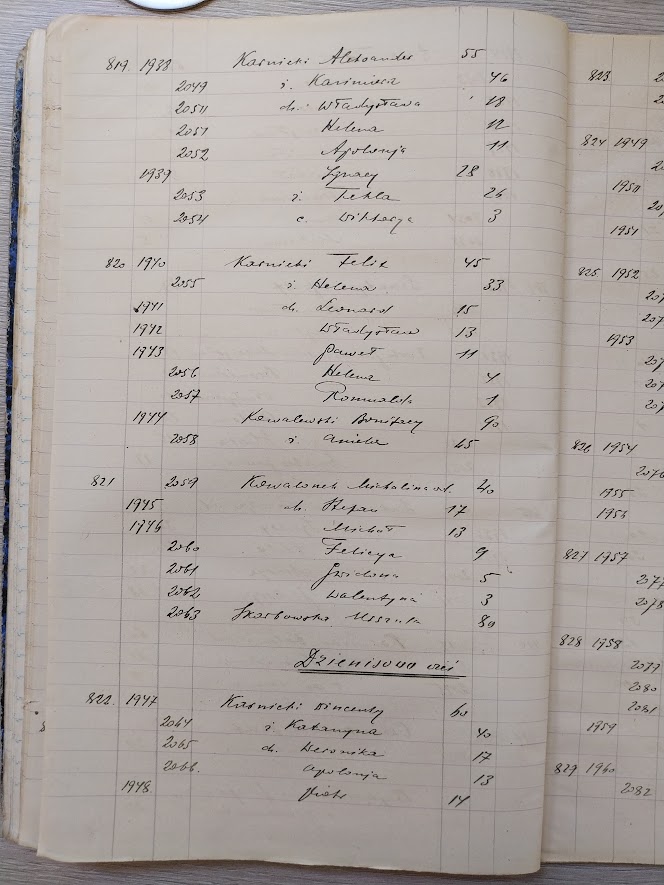 819 1938 Karnicki Aleksander 55
2049 ż. Kazimiera 46
2050 dz. Władysława 18
2051 Helena 12
2052 Apolonja 11
1939 Ignacy 28
2053 ż. Tekla 26
2054 c. Wiktorja 3
820 1940 Karnicki Felix 45
2055 ż. Helena 33
1941 dz. Leonard 15
1942 Władysław 13
1943 Paweł 11
2056 Helena 4
2057 Romualda 1
1944 Kowalewski Bonifacy 90
2058 ż. Aniela 65
821 2059 Michalina 40
1945 dz. Stefan 17
1946 Michał 13
2060 Felicya 9
2061 5
2062 Walentyna 3
2063 Skarbowska Urszula 80
Dzienisowo wieś
822. 1947 Karnicki Wincenty 60
2064 ż Katarzyna 40
2065 dz. Weronika 17
2066. Apolonja 13
1948 Piotr 14
823
824 1949
1950
1951
825 1952
1953
826 1954
2076
1955
1956
827 1957
2077
2078
828 1958
2079
2080
2081
1959
829 1960
2082